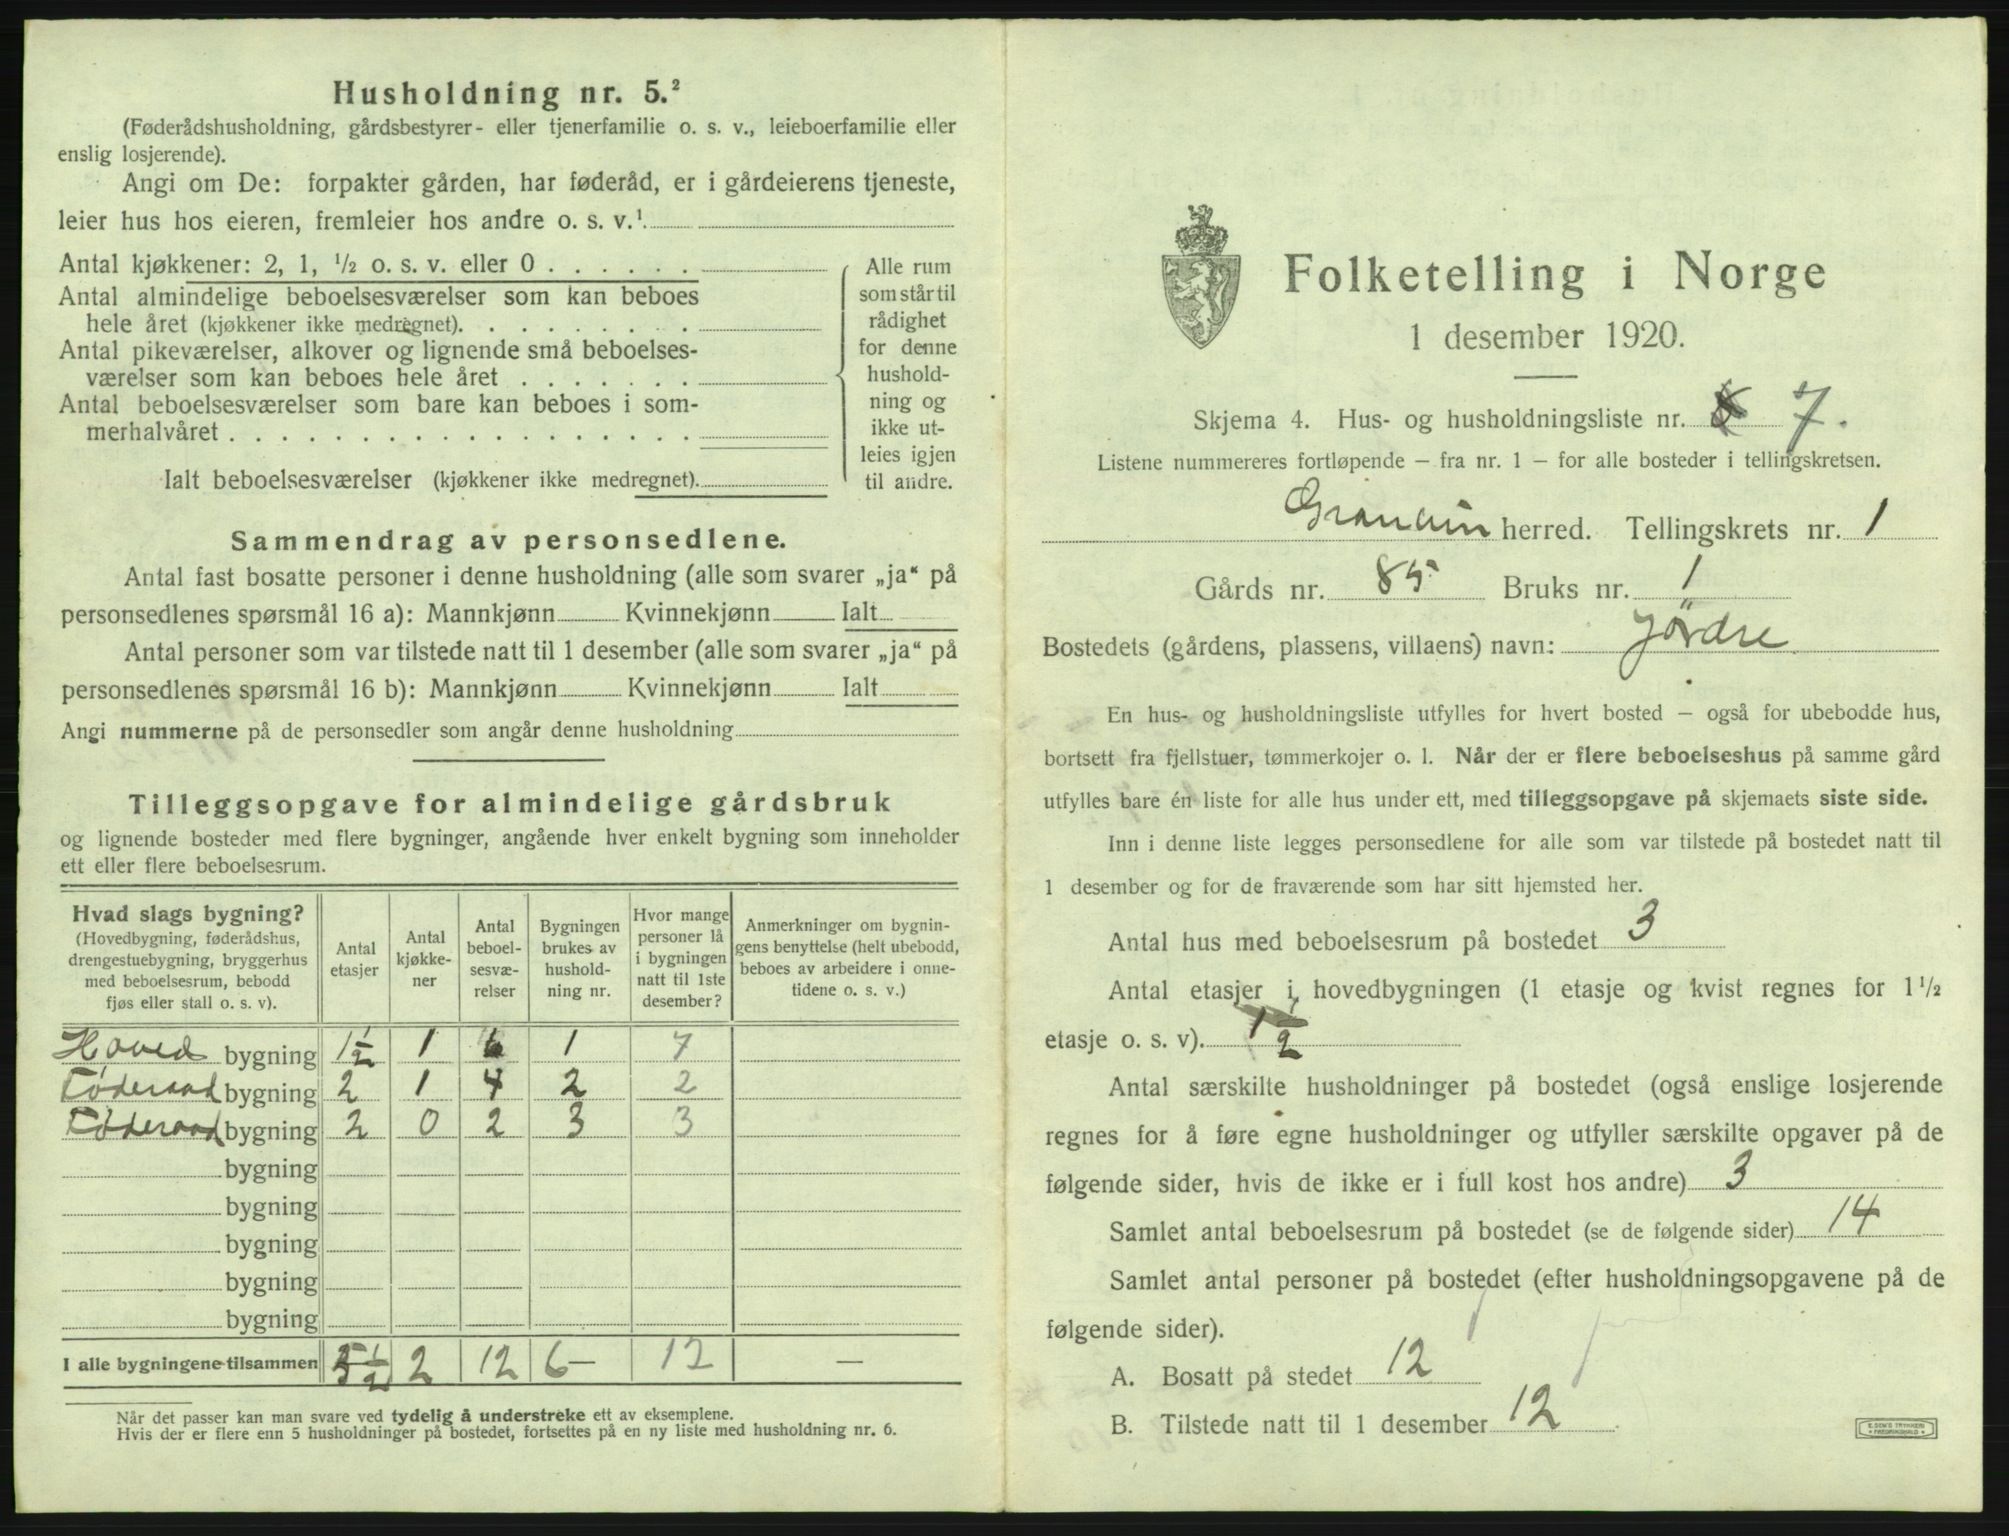 Husholdning nr. 5.²
(Føderådshusholdning, gårdsbestyrer- eller tjenerfamilie o. s. v., leieboerfamilie eller
enslig losjerende).
Angi om De: forpakter gården, har føderåd, er i gårdeierens tjeneste,
leier hus hos eieren, fremleier hos andre o. s. v.¹
Antal kjøkkener: 2, 1, ½ o. s. v. eller 0 . . . . . .
Antal almindelige beboelsesværelser som kan beboes
hele året (kjøkkener ikke medregnet). . . . . . . . .
Antal pikeværelser, alkover og lignende små beboelses-
værelser som kan beboes hele året . . . . . . .
Antal beboelsesværelser som bare kan beboes i som-
merhalvåret . . . . . . . . . . . . . . . . . .
Ialt beboelsesværelser (kjøkkener ikke medregnet).
Alle rum
som står til
rådighet
for denne
hushold-
ning og
ikke ut-
leies igjen
til andre.
Sammendrag av personsedlene.
Antal fast bosatte personer i denne husholdning (alle som svarer „ja“ på
personsedlenes spørsmål 16 a): Mannkjønn Kvinnekjønn Ialt
Antal personer som var tilstede natt til 1 desember (alle som svarer „ja“ på
personsedlenes spørsmål 16 b): Mannkjønn Kvinnekjønn Ialt
Angi nummerne på de personsedler som angår denne husholdning
Tilleggsopgave for almindelige gårdsbruk
og lignende bosteder med flere bygninger, angående hver enkelt bygning som inneholder
ett eller flere beboelsesrum.
Hvad slags bygning?
(Hovedbygning, føderådshus,
drengestuebygning, bryggerhus
med beboelsesrum, bebodd
fjøs eller stall o. s. v).
Antal
etasjer
Antal
kjøkke-
ner
Antal
beboel-
sesvæ-
relser
Bygningen
brukes av
hushold-
ning nr.
Hvor mange
personer lå
i bygningen
natt til 1ste
desember?
Anmerkninger om bygnin-
gens benyttelse (helt ubebodd,
beboes av arbeidere i onne-
tidene o. s. v.)
Hoved bygning 1½ 1 6 1 7
Føderaad bygning 2 1 4 2 2
Føderaad bygning 2 0 2 3 3
bygning
bygning
bygning
bygning
bygning
I alle bygningene tilsammen 5½ 2 12 6 — 12 —
Når det passer kan man svare ved tydelig å understreke ett av eksemplene.
Hvis der er flere enn 5 husholdninger på bostedet, fortsettes på en ny liste med husholdning nr. 6.
Folketelling i Norge
1 desember 1920.
Skjema 4. Hus- og husholdningsliste nr. 7.
Listene nummereres fortløpende — fra nr. 1 — for alle bosteder i tellingskretsen.
Granvin herred. Tellingskrets nr. 1
Gårds nr. 85 Bruks nr. 1
Bostedets (gårdens, plassens, villaens) navn: Jørdre
En hus- og husholdningsliste utfylles for hvert bosted — også for ubebodde hus,
bortsett fra fjellstuer, tømmerkojer o. l. Når der er flere beboelseshus på samme gård
utfylles bare én liste for alle hus under ett, med tilleggsopgave på skjemaets siste side.
Inn i denne liste legges personsedlene for alle som var tilstede på bostedet natt til
1 desember og for de fraværende som har sitt hjemsted her.
Antal hus med beboelsesrum på bostedet 3
Antal etasjer i hovedbygningen (1 etasje og kvist regnes for 1½
etasje o. s. v). 1½
Antal særskilte husholdninger på bostedet (også enslige losjerende
regnes for å føre egne husholdninger og utfyller særskilte opgaver på de
følgende sider, hvis de ikke er i full kost hos andre) 3
Samlet antal beboelsesrum på bostedet (se de følgende sider) 14
Samlet antal personer på bostedet (efter husholdningsopgavene på de
følgende sider).
A. Bosatt på stedet 12
B. Tilstede natt til 1 desember 12
E. SEM'S TRYKKERI
FREDRIKSHALD